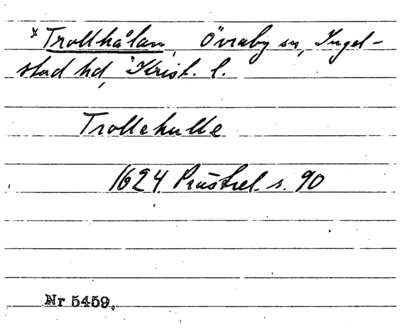 *Trollhålan, Övraby sn, Ingel-
stad hd, Krist. l.
Trollehulle
1624 Prästrel. s. 90
Nr 5459.